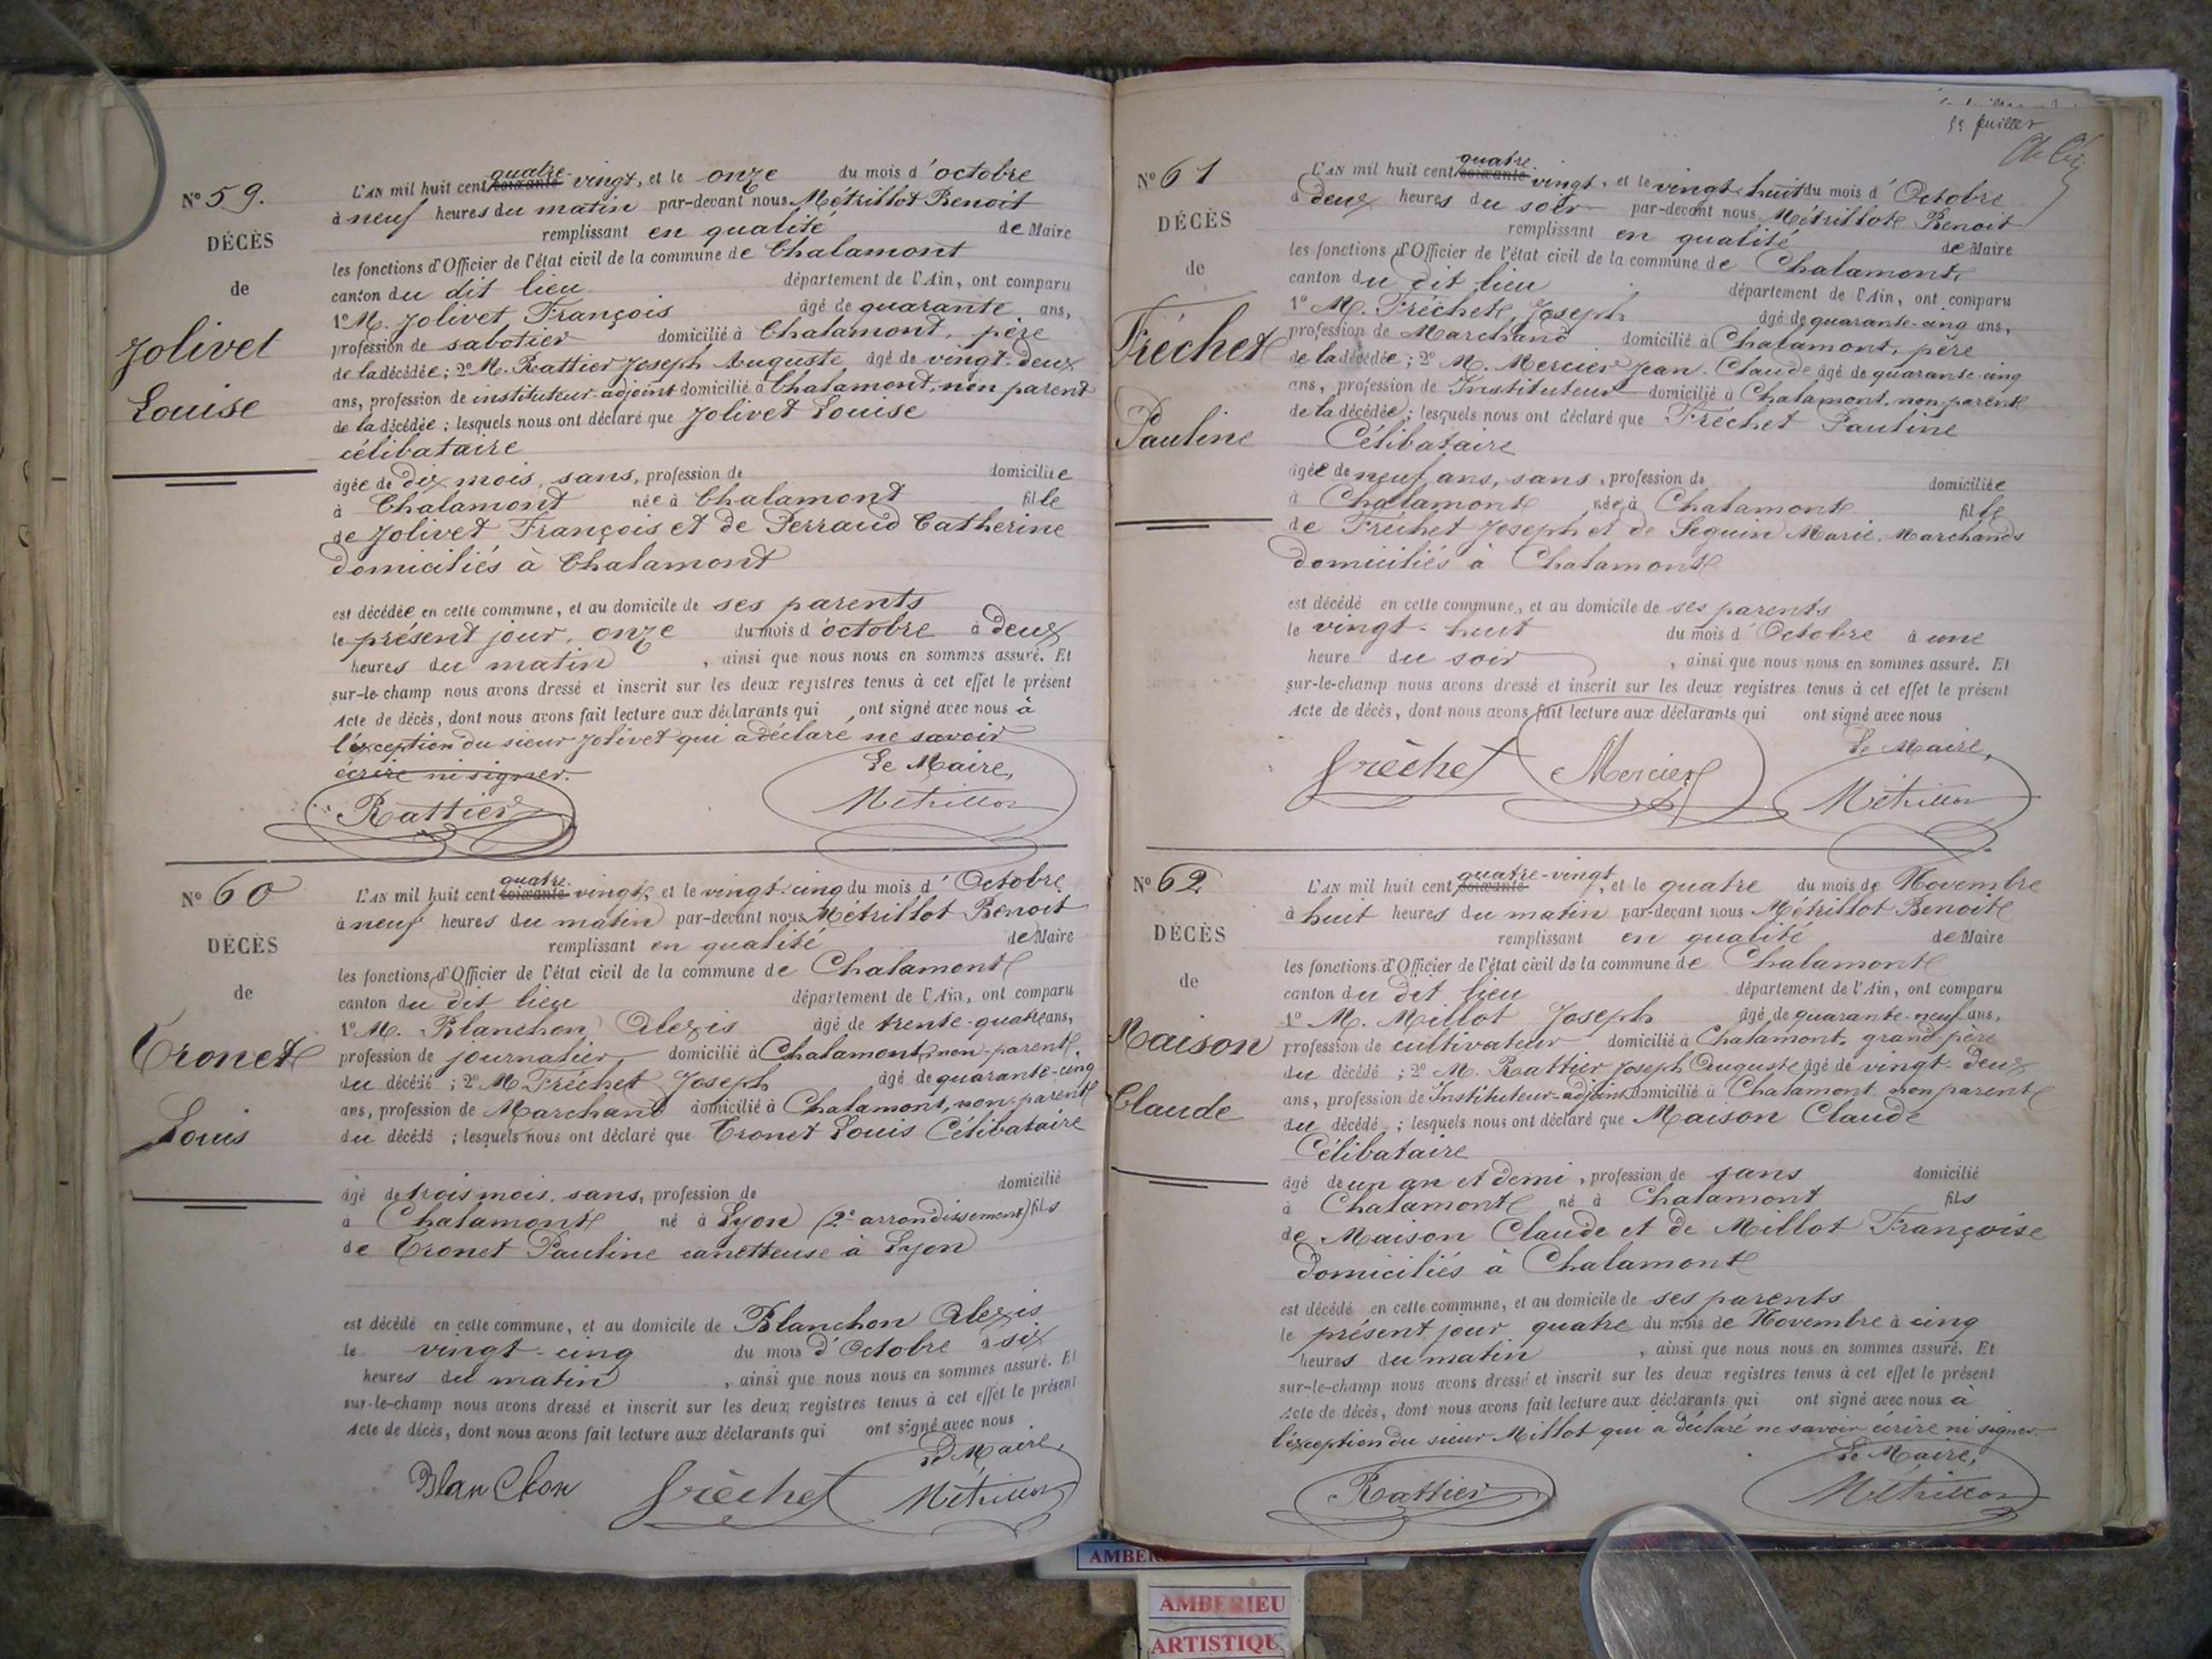 N° 59.
DÉCÈS
de
Jolivet
Louise
L'AN mil huit cent soixante quatre-vingt, et le onze du mois d'octobre
à neuf heures du matin par-devant nous Métrillot Benoit
remplissant en qualité de Maire
les fonctions d'Officier de l'état civil de la commune de Chalamont
canton du dit lieu département de l'Ain, ont comparu
1° M. Jolivet François âgé de quarante ans,
profession de sabotier domicilié à Chalamont, père
de la décédée ; 2° M. Rattier Joseph Auguste âgé de vingt-deux
ans, profession de instituteur-adjoint domicilié à Chalamont, non parent
de la décédée ; lesquels nous ont déclaré que Jolivet Louise
célibataire
âgée de dix mois, sans, profession de domiciliée
à Chalamont née à Chalamont fille
de Jolivet François et de Perraud Catherine
domiciliés à Chalamont
est décédée en cette commune, et au domicile de ses parents
le présent jour, onze du mois d'octobre à deux
heures du matin , ainsi que nous nous en sommes assuré. Et
sur-le-champ nous avons dressé et inscrit sur les deux registres tenus à cet effet le présent
Acte de décès, dont nous avons fait lecture aux déclarants qui ont signé avec nous à
l'exception du sieur Jolivet qui a déclaré ne savoir
écrire ni signer.
Le Maire,
Rattier Métrillot
N° 60
DÉCÈS
de
Tronet
Louis
L'AN mil huit cent soixante quatre-vingt, et le vingt-cinq du mois d'Octobre
à neuf heures du matin par-devant nous Métrillot Benoit
remplissant en qualité de Maire
les fonctions d'Officier de l'état civil de la commune de Chalamont
canton du dit lieu département de l'Ain, ont comparu
1° M. Blanchon Alexis âgé de trente-quatre ans,
profession de journalier domicilié à Chalamont, non-parent,
du décédé ; 2° M. Fréchet Joseph âgé de quarante-cinq
ans, profession de Marchand domicilié à Chalamont, non-parent
du décédé ; lesquels nous ont déclaré que Tronet Louis Célibataire
âgé de trois mois, sans, profession de domicilié
à Chalamont né à Lyon (2e arrondissement) fils
de Tronet Pauline canetteuse à Lyon
est décédé en cette commune, et au domicile de Blanchon Alexis
le vingt-cinq du mois d'Octobre à six
heures du matin , ainsi que nous nous en sommes assuré. Et
sur-le-champ nous avons dressé et inscrit sur les deux registres tenus à cet effet le présent
Acte de décès, dont nous avons fait lecture aux déclarants qui ont signé avec nous.
Le Maire,
Blanchon Frèchet Métrillot
feuillet
N° 61
DÉCÈS
de
Fréchet
Pauline
L'AN mil huit cent soixante quatre-vingt, et le vingt-huit du mois d'Octobre
à deux heures du soir par-devant nous Métrillot Benoit
remplissant en qualité de Maire
les fonctions d'Officier de l'état civil de la commune de Chalamont
canton du dit lieu département de l'Ain, ont comparu
1° M. Fréchet Joseph âgé de quarante-cinq ans,
profession de Marchand domicilié à Chalamont, père
de la décédée ; 2° M. Mercier Jean-Claude âgé de quarante-cinq
ans, profession de Instituteur domicilié à Chalamont, non-parent
de la décédée ; lesquels nous ont déclaré que Fréchet Pauline
Célibataire
âgée de neuf ans, sans, profession de domiciliée
à Chalamont née à Chalamont fille
de Fréchet Joseph et de Seguin Marie, Marchands
domiciliés à Chalamont
est décédé en cette commune, et au domicile de ses parents
le vingt-huit du mois d'Octobre à une
heure du soir , ainsi que nous nous en sommes assuré. Et
sur-le-champ nous avons dressé et inscrit sur les deux registres tenus à cet effet le présent
Acte de décès, dont nous avons fait lecture aux déclarants qui ont signé avec nous
Le Maire,
Frèchet Mercier Métrillot
N° 62
DÉCÈS
de
Maison
Claude
L'AN mil huit cent soixante quatre-vingt, et le quatre du mois de Novembre
à huit heures du matin par-devant nous Métrillot Benoit
remplissant en qualité de Maire
les fonctions d'Officier de l'état civil de la commune de Chalamont
canton du dit lieu département de l'Ain, ont comparu
1° M. Millot Joseph âgé de quarante-neuf ans,
profession de cultivateur domicilié à Chalamont, grand-père
du décédé ; 2° M. Rattier Joseph Auguste âgé de vingt-deux
ans, profession de Instituteur-adjoint domicilié à Chalamont non parent
du décédé ; lesquels nous ont déclaré que Maison Claude
Célibataire
âgé de un an et demi, profession de sans domicilié
à Chalamont né à Chalamont fils
de Maison Claude et de Millot Françoise
domiciliés à Chalamont
est décédé en cette commune, et au domicile de ses parents
le présent jour quatre du mois de Novembre à cinq
heures du matin , ainsi que nous nous en sommes assuré. Et
sur-le-champ nous avons dressé et inscrit sur les deux registres tenus à cet effet le présent
Acte de décès, dont nous avons fait lecture aux déclarants qui ont signé avec nous à
l'exception du sieur Millot qui a déclaré ne savoir écrire ni signer.
Le Maire,
Rattier Métrillot
AMBERIEU
ARTISTIQUE